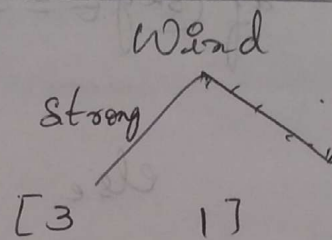 Wind
Strong
[3 1]